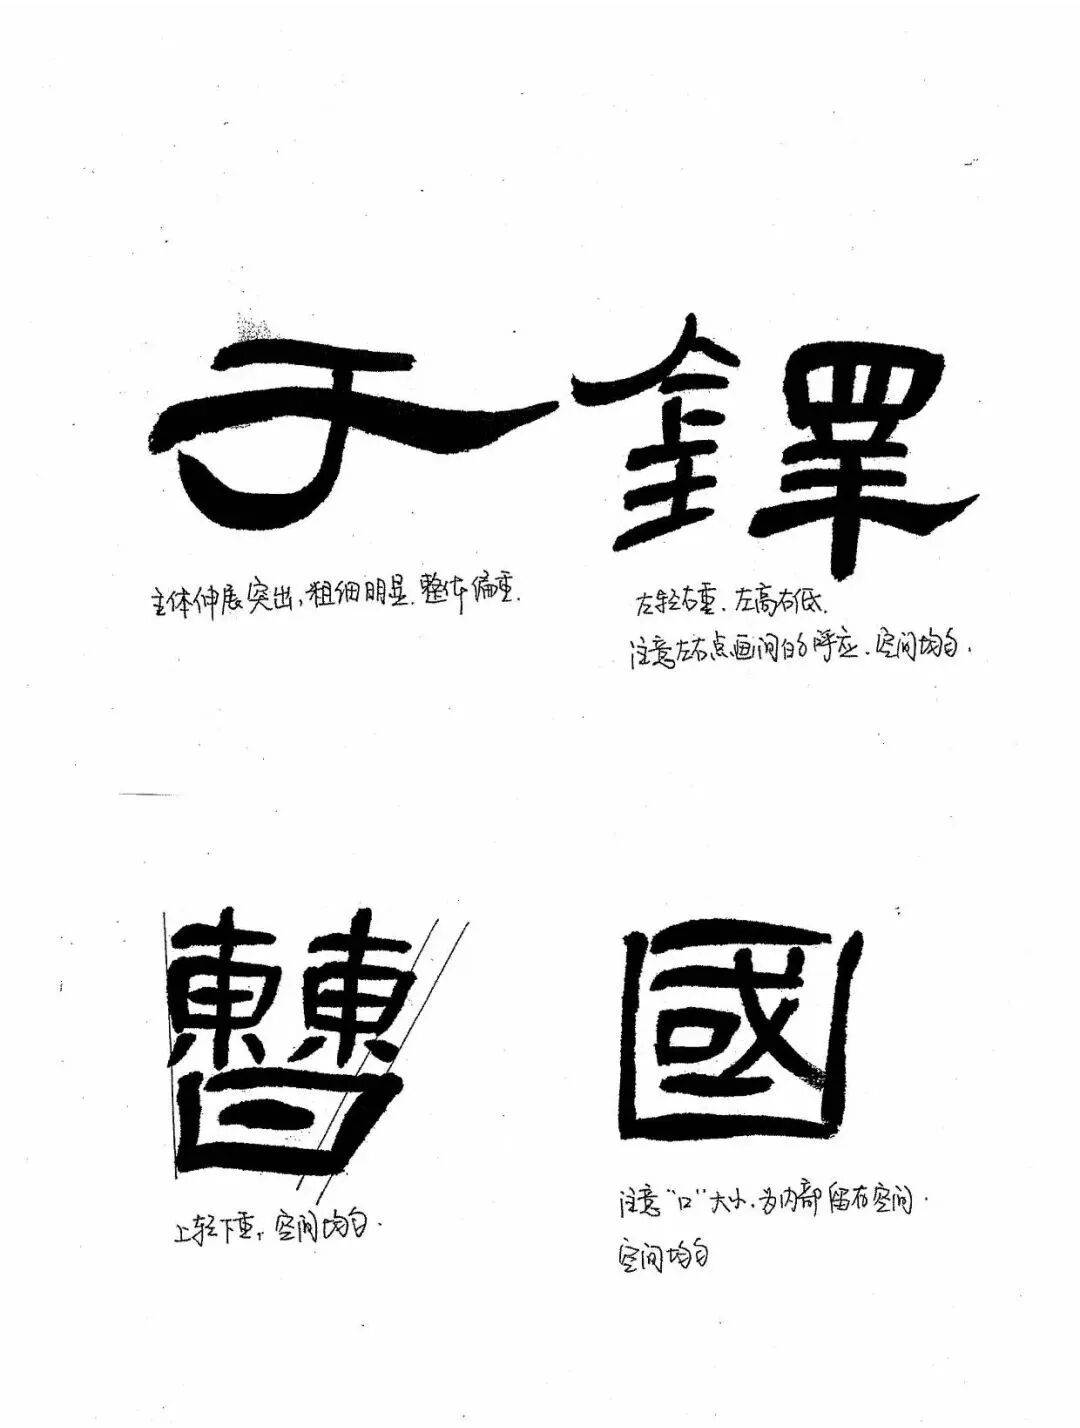 于
鐸
主体伸展突出，粗细明显，整体偏重.
左轻右重、左高右低.
注意左右点画间的呼应、空间均匀.
曹
國
上轻下重，空间均匀.
注意“口”大小，为内部留有空间.
空间均匀